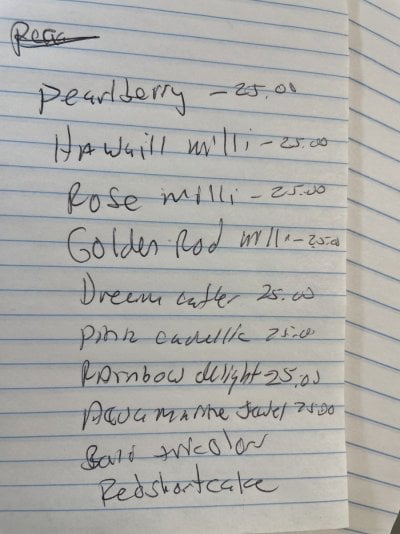 Pearlberry - 25.00
HAWaill milli - 25.00
Rose milli - 25.00
Golden Rod milli - 25.00
Dream cather 25.00
Pink cadellic 25.00
RAinbow delight 25.00
AQUA marine Jewel 25.00
tricolor
Redshortcake